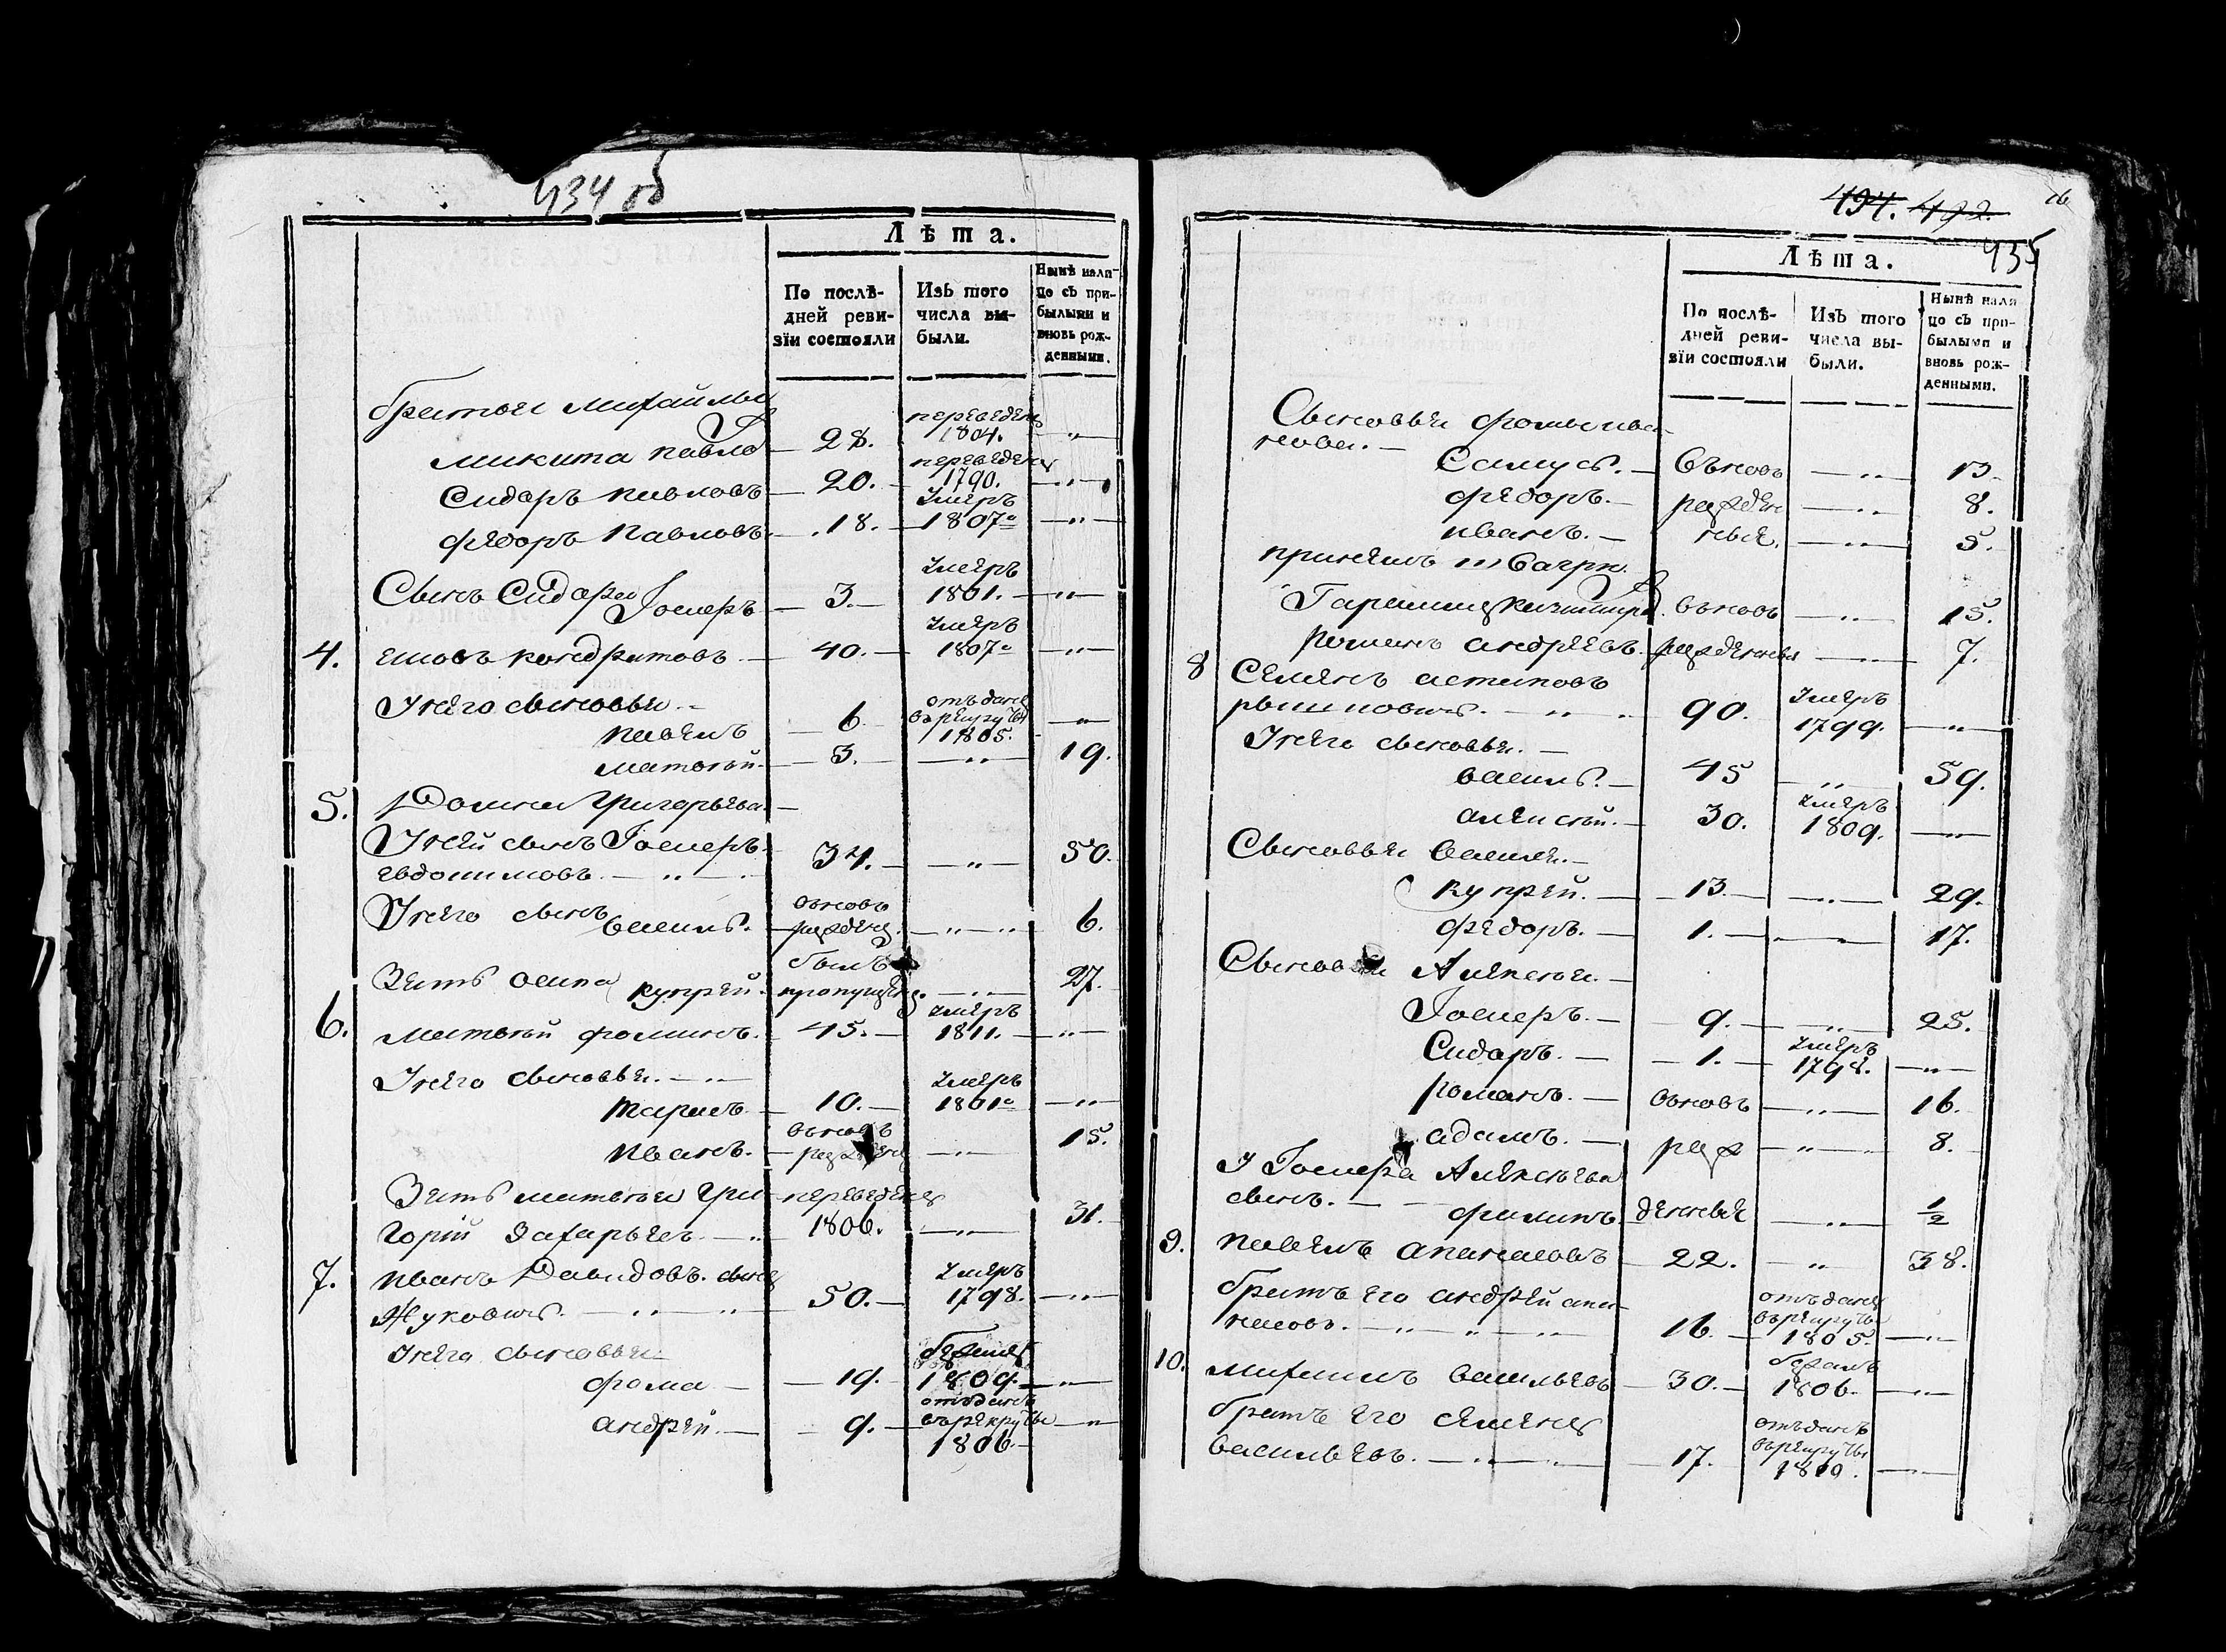 434 об
Лѣта.
По послѣ-
дней реви-
зїи состояли
Изъ того
числа вы-
были.
Нынѣ нали-
цо съ при-
былыми и
вновь рож-
денными.
братья михайлы
микита павло 28. переведенъ 1804. — „ —
Сидоръ павловъ — 20. — переведенъ 1790. — „ —
федоръ Павловъ — 18. — Умеръ 1807го — „ —
Сынъ Сидора
Іосиеръ — 3. — Умеръ 1801. — „ —
4. кондратовъ — 40. — Умеръ 1807го — „ —
Унего сыновья. —
павелъ — 6. отъданъ врекруты 1805. — „ —
матвѣй — 3. — „ — 19.
5. Домна Григорьева. —
Уней сынъ
евдокимовъ. — „ — 34. — „ — 50.
Унего сынъ
василь. вновь рожденъ. — „ — 6.
Зять осипа купрѣй. былъ пропущенъ. — „ — 27.
6. матвѣй фоминъ. — 45. — Умеръ 1811. — „ —
Унего сыновья. — „ —
тарасъ. — 10. — Умеръ 1801го — „ —
иванъ. — вновь рожденъ — „ — 15.
Зять матвѣя Гри- переведенъ
горій Захарьевъ. — „ 1806. — „ — 31.
7. иванъ Давидовъ. сынъ
Жуковичъ. — „ — „ 50. — Умеръ 1798. — „ —
Унего сыновья —
фома — 19. 1809. — „ —
андрей. — 9. — отъданъ върекруты 1806. — „ —
494. 492.
16
435
Лѣта.
По послѣ-
дней реви-
зїи состояли
Изъ того
числа вы-
были.
Нынѣ нали
цо съ при-
былыми и
вновь рож-
денными.
Сыновья фомы ива-
нова. —
Самусь. — Вновь — „ — 13.
федоръ. — рожден — „ — 8.
иванъ. — ные. — „ — 5.
принятъ
вновь — „ — 15.
романъ андреевъ. рожденные — „ — 7.
8 Семенъ
90. Умеръ 1799. — „ —
Унего сыновья. —
василь. — 45 — „ — 59.
алексѣй. — 30. Умеръ 1809. — „ —
Сыновья василя. —
Купрѣй. — 13 — „ — 29.
федоръ. — 1. — „ — 17.
Сыновья Алексѣя. —
9. — „ — 25.
Сидоръ. — 1. — Умеръ 1798. — „ —
романъ. — вновь — „ — 16.
адамъ. — рож — „ — 8.
Алексѣева
сынъ. — филипъ денные — „ — 1/2
9. павелъ апанасовъ 22. — „ — 38.
братъ его андрей апа-
насовъ. — „ — „ — 16. отъданъ врекруты 1805. — „ —
10. михаилъ васильевъ — 30. — бежалъ 1806. — „ —
братъ его семенъ
васильевъ. — „ — 17. отъданъ врекруты 1809. — „ —